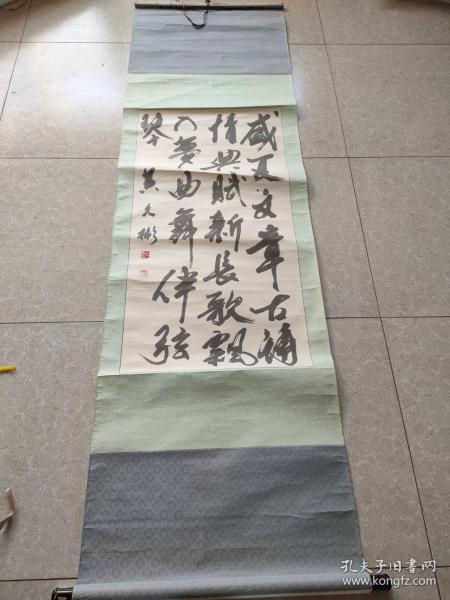 盛夏文章古誦
情興賦新長歌飄
入夢曲舞伴弦
琴 黄文彬
孔夫子旧书网
www.kongfz.com